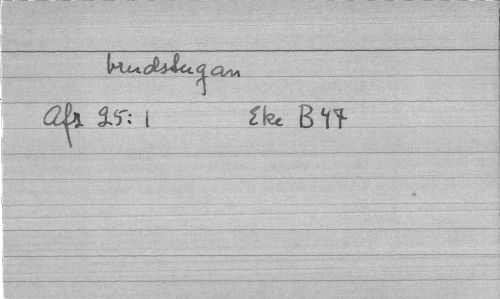 brudstugan
Afz 25:1 Eke B 47